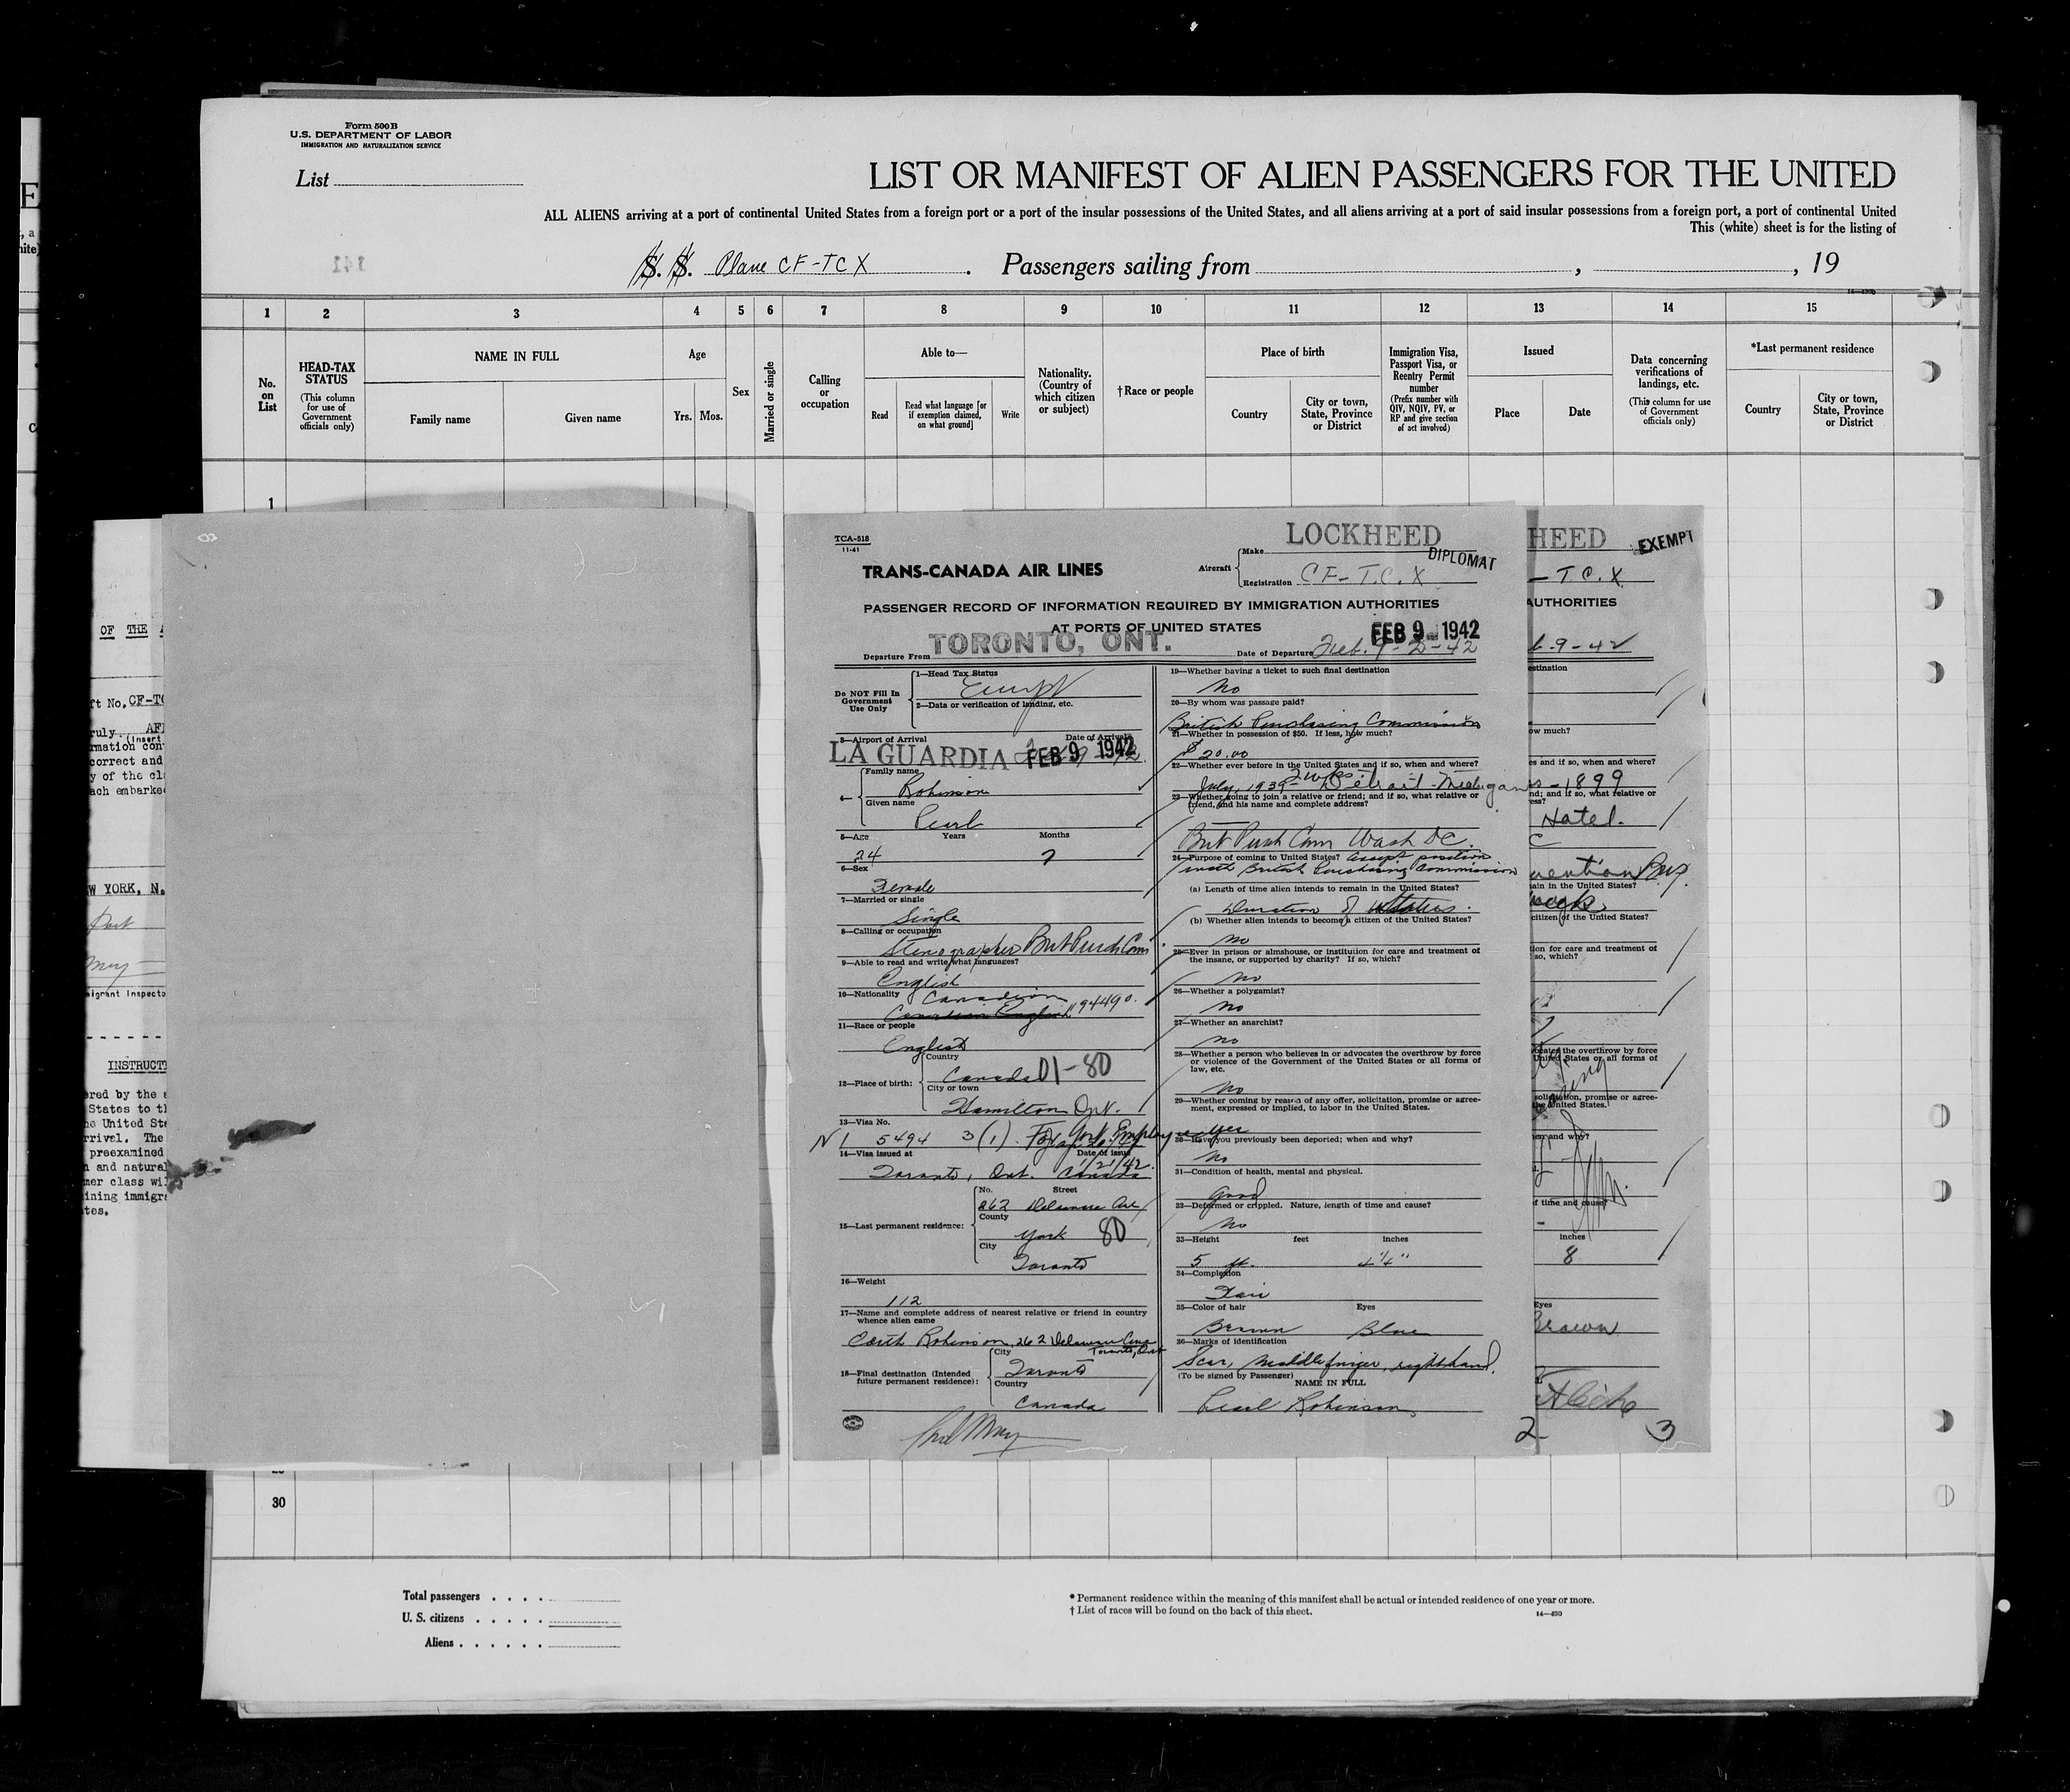 Form 500 B
U.S. DEPARTMENT OF LABOR
IMMIGRATION AND NATURALIZATION SERVICE
List
LIST OR MANIFEST OF ALIEN PASSENGERS FOR THE UNITED
ALL ALIENS arriving at a port of continental United States from a foreign port or a port of the insular possessions of the United States, and all aliens arriving at a port of said insular possessions from a foreign port, a port of continental United
This (white) sheet is for the listing of
141
S. S. Plane CF-TCX . Passengers sailing from , , 19
1 2 3 4 5 6 7 8 9 10 11 12 13 14 15
No. on List
HEAD-TAX STATUS
(This column for use of Government officials only)
NAME IN FULL
Family name Given name
Age
Yrs. Mos.
Sex
Married or single
Calling or occupation
Able to—
Read
Read what language [or if exemption claimed, on what ground]
Write
Nationality. (Country of which citizen or subject)
†Race or people
Place of birth
Country
City or town, State, Province or District
Immigration Visa, Passport Visa, or Reentry Permit number
(Prefix number with QIV, NQIV, PV, or RP and give section of act involved)
Issued
Place Date
Data concerning verifications of landings, etc.
(This column for use of Government officials only)
*Last permanent residence
Country
City or town, State, Province or District
1
TCA-518
11-41
TRANS-CANADA AIR LINES
Aircraft
Make LOCKHEED
DIPLOMAT
Registration CF-T.C.X
PASSENGER RECORD OF INFORMATION REQUIRED BY IMMIGRATION AUTHORITIES
AT PORTS OF UNITED STATES
FEB 9 1942
Departure From TORONTO, ONT.
Date of Departure Feb. 9-2-42
Do NOT Fill In Government Use Only
1—Head Tax Status
Exempt
2—Data or verification of landing, etc.
3—Airport of Arrival Date of Arrival
LA GUARDIA FEB 9 1942
4—
Family name
Robinson
Given name
Pearl
5—Age Years Months
24 7
6—Sex
Female
7—Married or single
Single
8—Calling or occupation
Stenographer Brit Purch Com
9—Able to read and write what languages?
English
10—Nationality Canadian
Canadian English 94490.
11—Race or people
English
12—Place of birth:
Country
Canada 01-80
City or town
Hamilton Ont.
13—Visa No.
5494 3(1). For Govt Employee
14—Visa issued at Date of issue
Toronto, Ont. Canada 1/21/42.
15—Last permanent residence:
No. Street
262 Delaware Ave
County
York 80
City
Toronto
16—Weight
112
17—Name and complete address of nearest relative or friend in country whence alien came
Robinson, 262 Delaware Ave
Toronto, Ont
18—Final destination (Intended future permanent residence):
City
Toronto
Country
Canada
19—Whether having a ticket to such final destination
No
20—By whom was passage paid?
British Purchasing Commission
21—Whether in possession of $50. If less, how much?
$20.00
22—Whether ever before in the United States and if so, when and where?
July, 1939 - 2 wks. Detroit - Michigan
23—Whether going to join a relative or friend; and if so, what relative or friend, and his name and complete address?
Brit Purch Com Wash DC.
24—Purpose of coming to United States? accept position
with British Purchasing Commission
(a) Length of time alien intends to remain in the United States?
Duration of
(b) Whether alien intends to become a citizen of the United States?
No
25—Ever in prison or almshouse, or institution for care and treatment of the insane, or supported by charity? If so, which?
No
26—Whether a polygamist?
No
27—Whether an anarchist?
No
28—Whether a person who believes in or advocates the overthrow by force or violence of the Government of the United States or all forms of law, etc.
No
29—Whether coming by reason of any offer, solicitation, promise or agreement, expressed or implied, to labor in the United States.
Yes
30—Have you previously been deported; when and why?
No
31—Condition of health, mental and physical.
Good
32—Deformed or crippled. Nature, length of time and cause?
No
33—Height feet inches
5 ft. 4¼"
34—Complexion
Fair
35—Color of hair Eyes
Brown Blue
36—Marks of identification
Scar, middle finger, right hand.
(To be signed by Passenger)
NAME IN FULL
Pearl Robinson
2
HEED EXEMPT
- T C. X
AUTHORITIES
9-42
- 1899
Hotel.
8
Eyes
Brown
3
OF THE
ft No. CF-TC
correct and
ach embarked
W YORK, N.
INSTRUCT
States to th
preexamined
30
Total passengers . . . .
U. S. citizens . . . . .
Aliens . . . . . .
* Permanent residence within the meaning of this manifest shall be actual or intended residence of one year or more.
† List of races will be found on the back of this sheet.